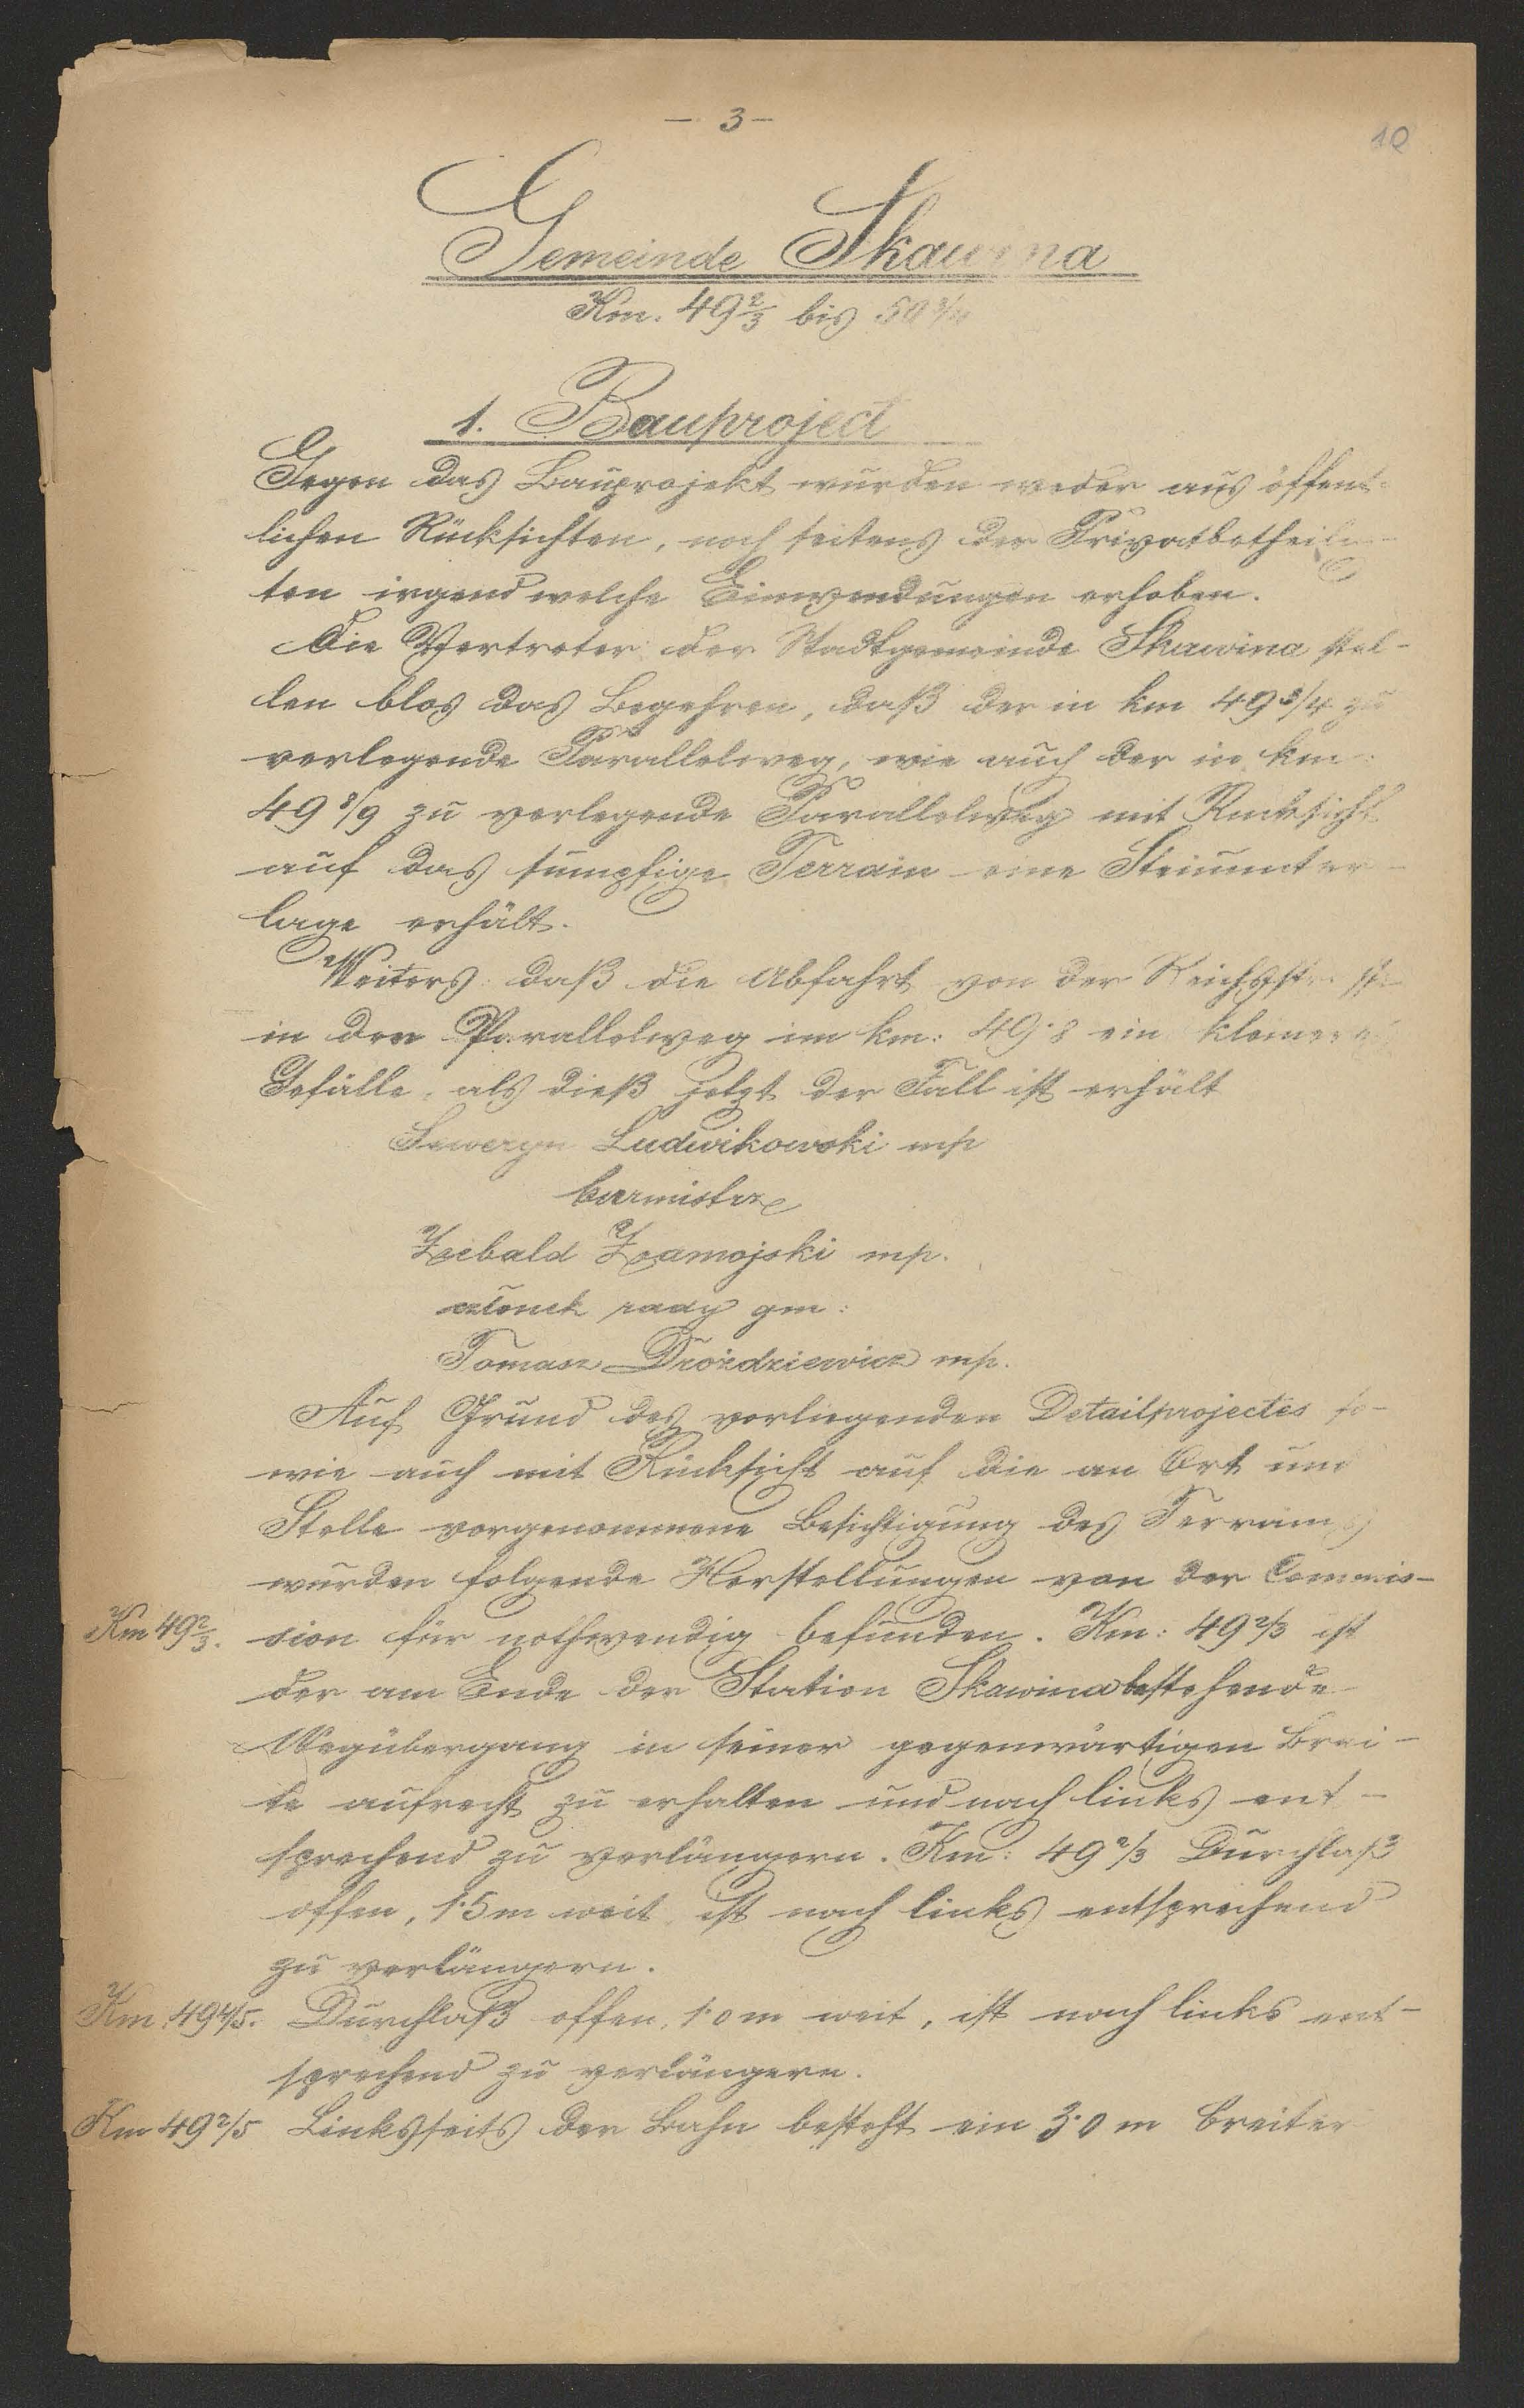 - 3 -
10
Gemeinde Skawina
Km. 49 2/3 bis 50 3/4
1. Bauproject
Gegen das Bauprojekt wurden weder aus öffent-
lichen Rücksichten, noch seitens der Privatbetheilig-
ten irgend welche Einwendungen erhoben.
Die Vertreter der Stadtgemeinde Skawina stel-
len blos das Begehren, daß der in km 49 3/4 zu
verlegende Parallelweg, wie auch der in km:
49 8/9 zu verlegende Parallelweg mit Rücksicht
auf das sumpfige Terrain eine Steinunter-
lage erhält.
Weiters: daß die Abfahrt von der Reichsstrasse
in den Parallelweg im km: 49·8 ein kleineres
Gefälle, als dieß jetzt der Fall ist erhält
Seweryn Ludwikowski mp
burmistrz
Zebald Zamojski mp.
członek rady gm:
Tomasz Drożdziewicz mp.
Auf Grund des vorliegenden Detailprojectes so-
wie auch mit Rücksicht auf die an Ort und
Stelle vorgenommene Besichtigung des Terrains
wurden folgende Herstellungen von der Commis-
Km 49 2/3. sion für nothwendig befunden. Km: 49 2/3 ist
der am Ende der Station Skawina bestehende
Wegübergang in seiner gegenwärtigen Brei-
te aufrecht zu erhalten und nach links ent-
sprechend zu verlängern. Km: 49 2/3 Durchlaß
offen, 1·5 m weit ist nach links entsprechend
zu verlängern.
Km 49 4/5. Durchlaß offen, 1·0 m weit, ist nach links ent-
sprechend zu verlängern.
Km 49 2/5 Linksseits der Bahn besteht ein 3·0 m breiter